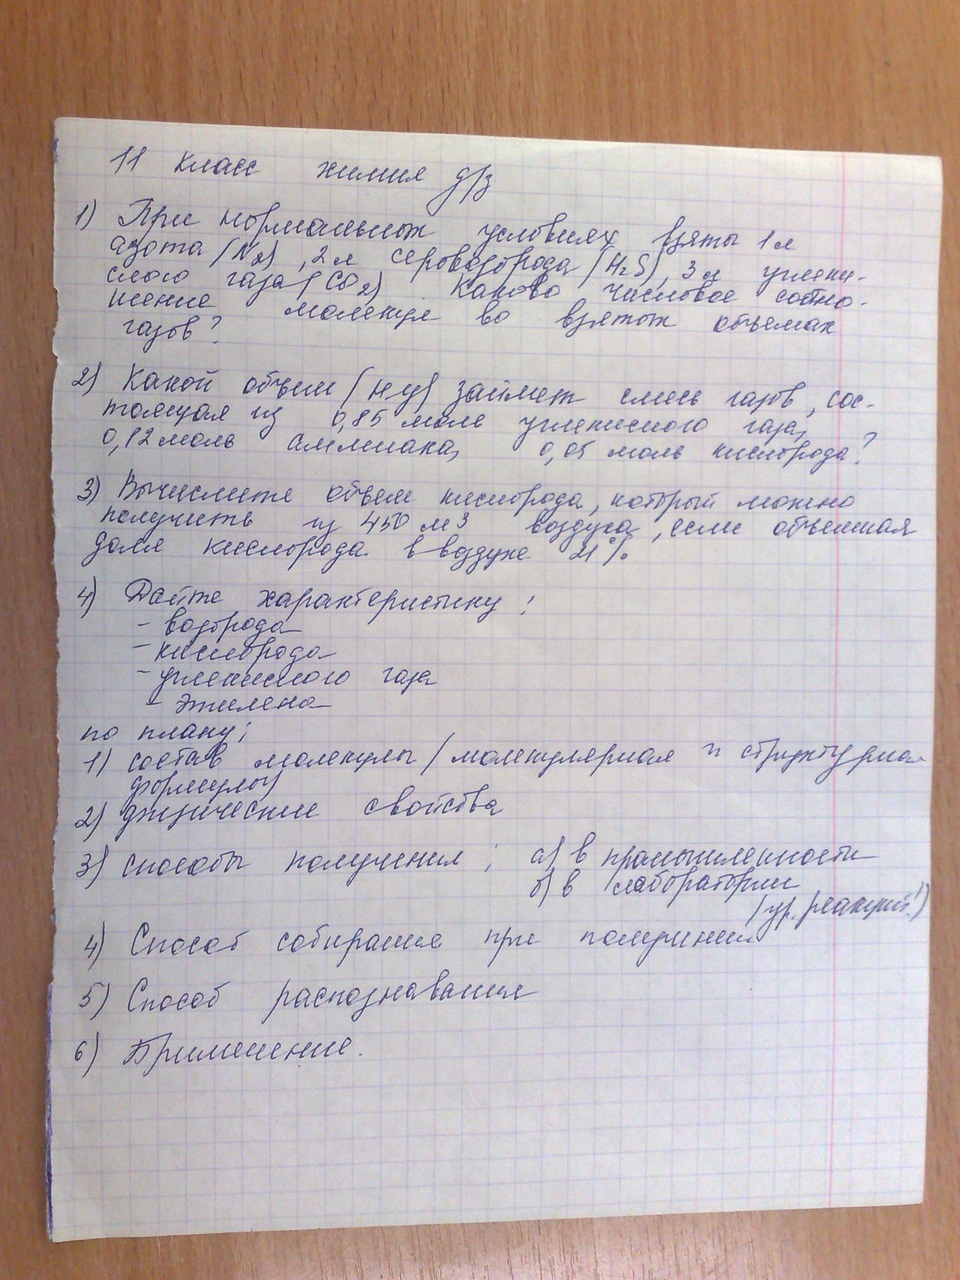 11 класс химия д/з
1) При нормальных условиях взяты 1 л
азота (N2), 2 л сероводорода (H2S), 3 л углеки-
слого газа (CO2). Каково числовое соотно-
шение молекул во взятых объемах
газов?
2) Какой объем (н.у) займет смесь газов, сос-
тоящая из 0,85 моль углекислого газа,
0,12 моль аммиака, 0,05 моль кислорода?
3) Вычислите объем кислорода, который можно
получить из 450 м3 воздуха, если объемная
доля кислорода в воздухе 21%
4) Дайте характеристику:
- водорода
- кислорода
- углекислого газа
- этилена
по плану:
1) состав молекулы (молекулярная и структурная
формулы)
2) физические свойства
3) способы получения: а) в промышленности
б) в лаборатории
(ур. реакций!)
4) Способ собирания при получении
5) Способ распознавания
6) Применение.